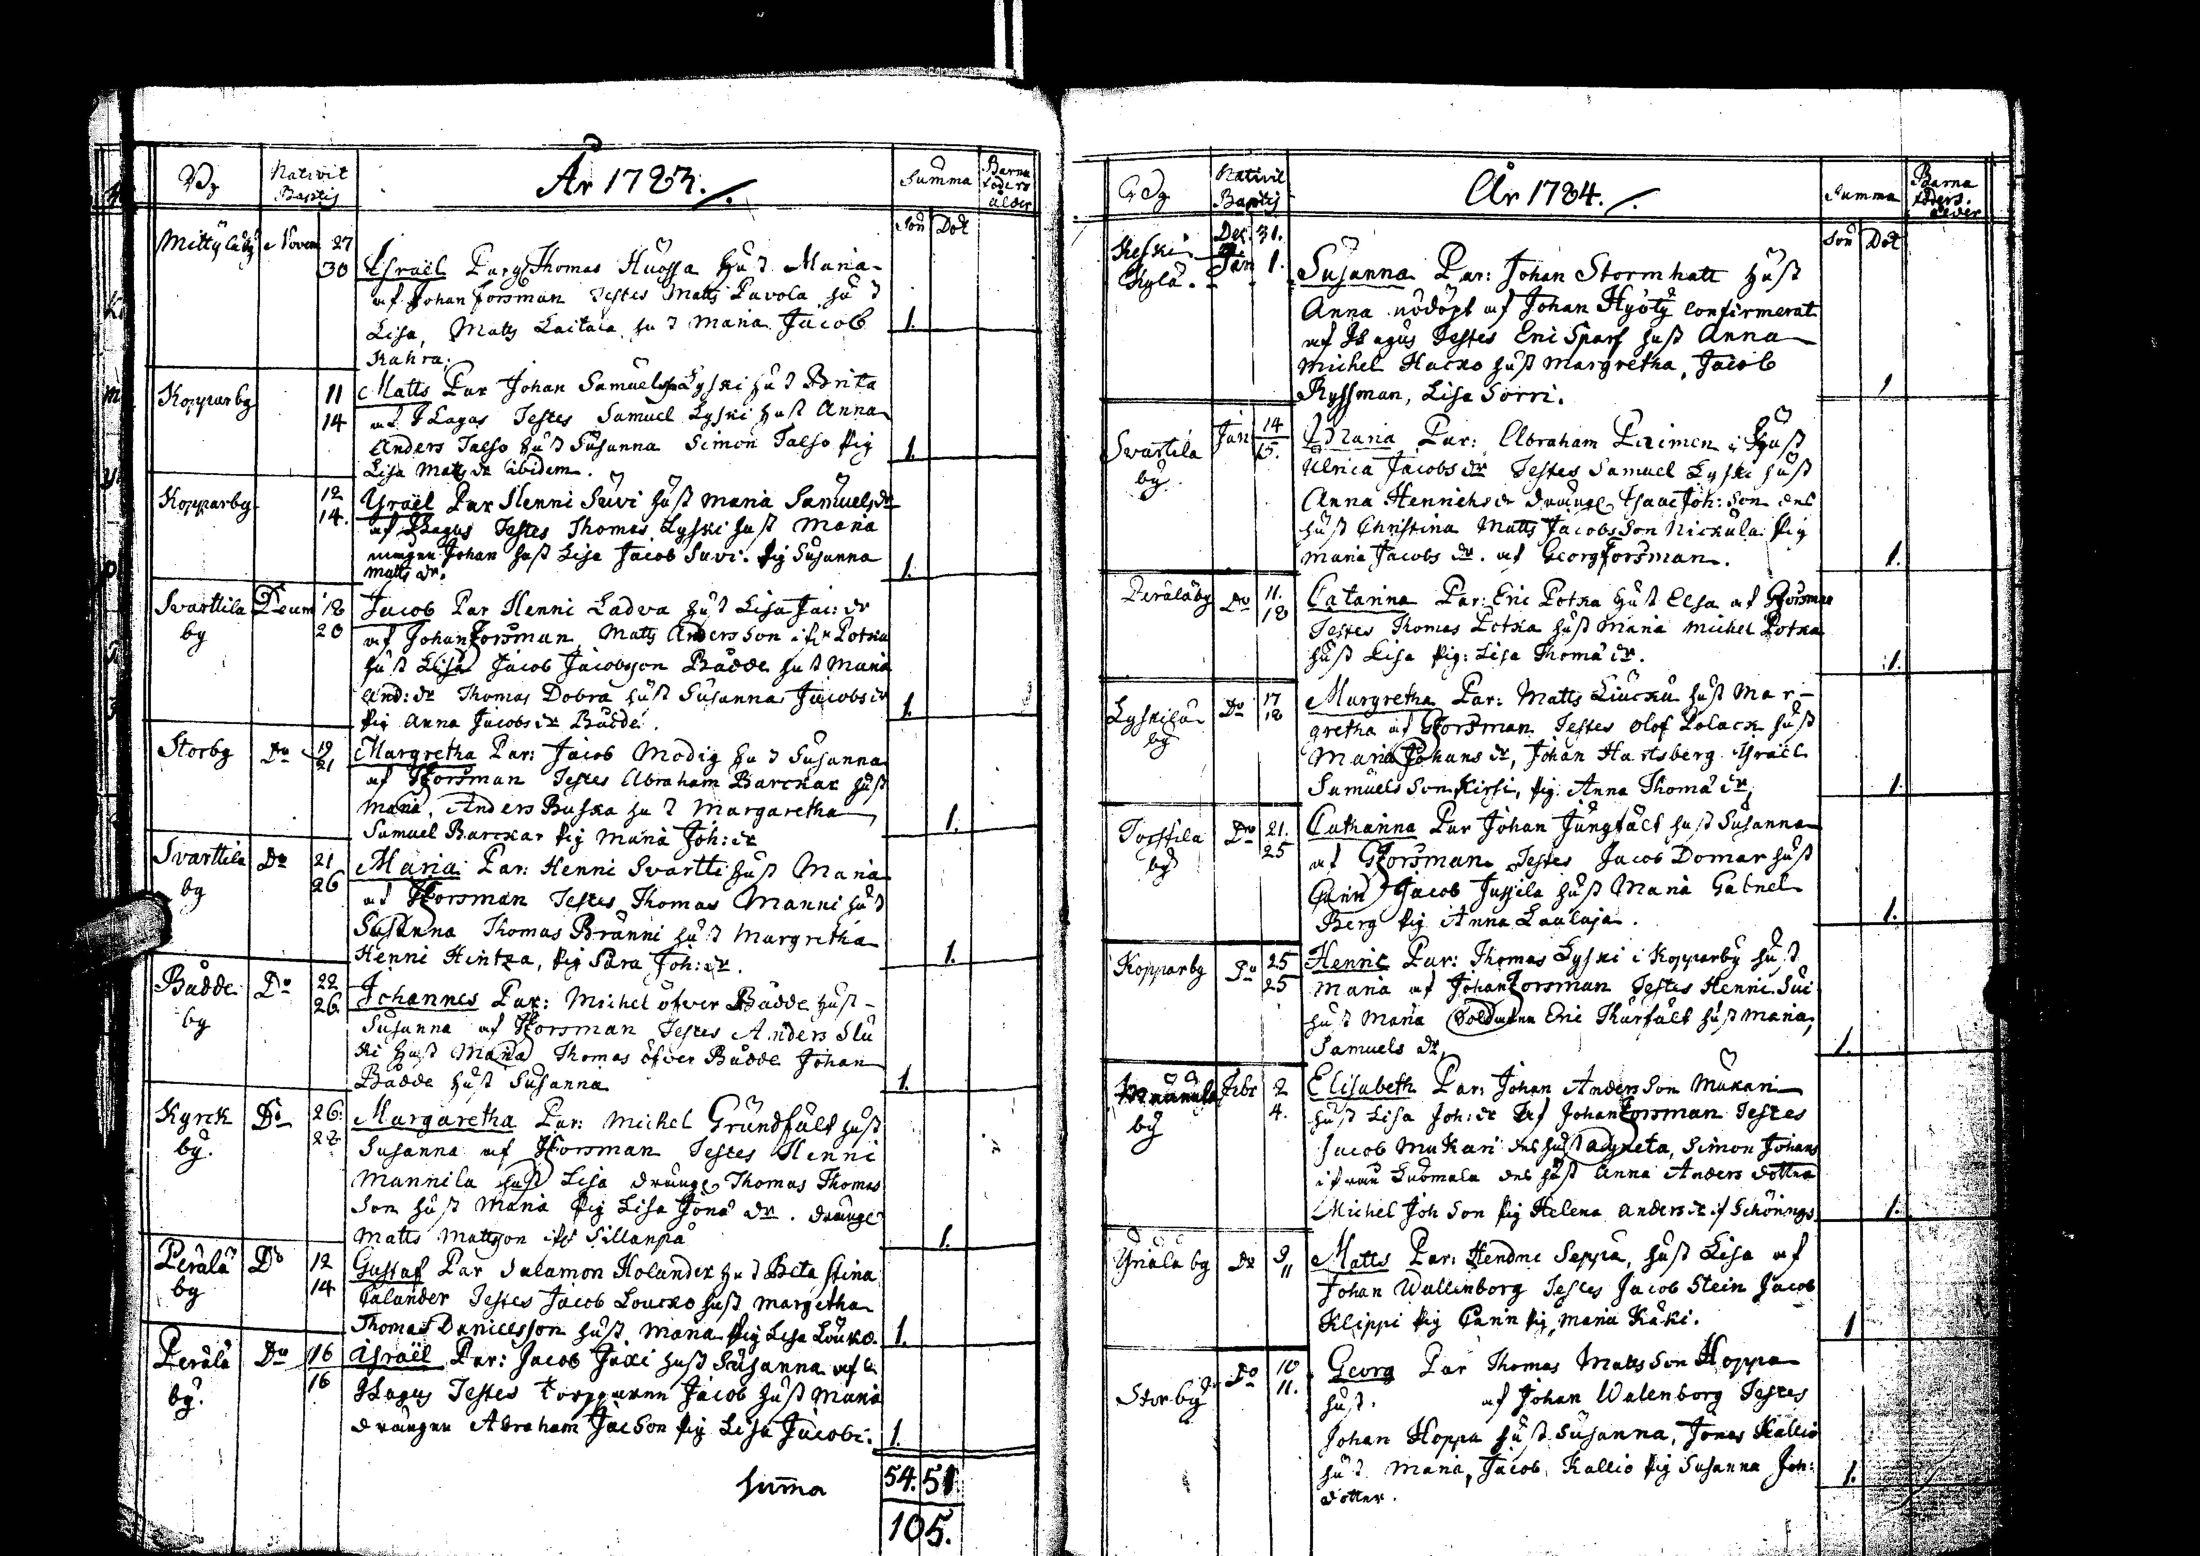 By Nativit Baptis År 1783. Summa Barna foders ålder
Son Dot
Mittylä by Novem 27
30 Israël Par Thomas Huossa hust Maria
af Johan Forsman Testes Matts Pavola hust
Lisa, Matts Laitala hust Maria Jacob 1.
Kahra.
Kopparby 11 Matts Par Johan Samuelson Lyski hust Brita
14 af I Lagus Testes Samuel Lyski hust Anna
Anders Talso hust Susanna Simon Talso pig 1.
Lisa Matts dr ibidem.
Kopparby 12 Ysraël Par Henni Suvi hust Maria Samuels dr
14. af I Lagus Testes Thomas Lyski hust Maria
Johan hust Lisa Jacob Suvi. pig Susanna
Matts dr. 1.
Svarttila Decem 18 Jacob Par Henni Ladva hust Lisa Jac: dr
by 20 af Johan Forsman Matts Andersson Potka
hust Lisa Jacob Jacobsson Bådde hust Maria
And: dr Thomas Dobra hust Susanna Jacobs dr 1.
pig Anna Jacobs dr Bådde.
Storby Do 19 Margretha Par: Jacob Modig hust Susanna
21 af Forsman Testes Abraham Barckar hust
Maria, Anders Buska hust Margaretha
Samuel Barckar pig Maria Joh: dr 1.
Svarttila Do 21 Maria Par: Henni Svartti hust Maria
by 26 af Forsman Testes Thomas Manni hust
Susanna Thomas Bränni hust Margretha
Henni Hintza, pig Sara Joh: dr. 1.
Bådde Do 22 Johannes Par: Michel öfver Bådde hust
by 26. Susanna af Forsman Testes Anders Slu
ki hust Maria Thomas öfver Bådde Johan
Bådde hust Susanna 1.
Kyrck Do 26. Margaretha Par: Michel Grundfält hust
by. 27 Susanna af Forsman Testes Henni
Mannila hust Lisa dräng Thomas Thomas
Son hust Maria pig Lisa Jona dr. dräng
Matts Mattsson Sillanpä 1.
Perälä Do 12 Gustaf Par Salamon Holander hust Beta Stina
by 14 Calander Testes Jacob Loucko hust Margetha
Thomas Danielsson hust Maria pig Lisa Louko. 1.
Perälä Do 16 Ysraël Par: Jacob Jäxi hust Susanna af
by. 16 I Lagus Testes torpparen Jacob hust Maria
drängen Abraham Jacson pig Lisa Jacobs. 1.
Summa 54. 51.
105.
By Nativit Baptis År 1784. Summa Barna foders. ålder
Son Dot
Keski Dec 31.
Kylä. Jan 1. Susanna Par: Johan Stormhatt hust
Anna nödöpt af Johan Hyöty confirmerat
af I Lagus Testes Eric Sparf hust Anna
Michel Hacko hust Margretha, Jacob
Ryssman, Lisa Sorri. 1
Svartila Jan 14 Maria Par: Abraham hust
by. 15. Ulrica Jacobs dr Testes Samuel Lyski hust
Anna Henrichs dr dräng Isaac Joh: Son des
hust Christina Matts Jacobs Son Nickula pig
Maria Jacobs dr. af Georg Forsman. 1.
Perälä by Do 11. Catarina Par: Eric Potka hust Elsa af Forsman
18 Testes Thomas Potka hust Maria Michel Potka
hust Lisa pig: Lisa Thoma dr. 1.
Lyskilä Do 17 Margretha Par: Matts Liucku hust Mar-
by 18 gretha af Forsman Testes Olof Polack hust
Maria Johans dr, Johan Hartsberg Israël
Samuels Son Kirsi, pig. Anna Thoma dr, 1.
Torstila Do 21. Catharina Par Johan Jungfält hust Susanna
by 25 af Forsman Testes Jacob Domar hust
Carin Jacob Jussila hust Maria Gabriel
Berg pig Anna Laulaja. 1.
Kopparby Do 25 Henric Par: Thomas Lyski i Kopparby hust
25 Maria af Johan Forsman Testes Henni Sui
hust Maria Soldaten Eric Thurfält hust Maria,
Samuels dr, 1.
Febr 2 Elisabeth Par: Johan Anderson Mukari
by 4. hust Lisa Joh: dr af Johan Forsman Testes
Jacob Mukari des hust Agneta, Simon Johans
ifrån Luomala des hust Anna Anders dotter
Michel Joh Son pig Helena Anders dr Schönings 1.
Ynälä by Do 9 Matts Par: Hendric Seppä, hust Lisa af
11 Johan Wallenborg Testes Jacob Stein Jacob
Klippi pig Carin pig, Maria Käki. 1
Storby Do 10 Georg Par Thomas Matts Son Hoppa
11. hust. af Johan Walenborg Testes
Johan Hoppa hust Susanna, Jonas Kallio
hust Maria, Jacob Kallio pig Susanna Joh: 1.
dotter.